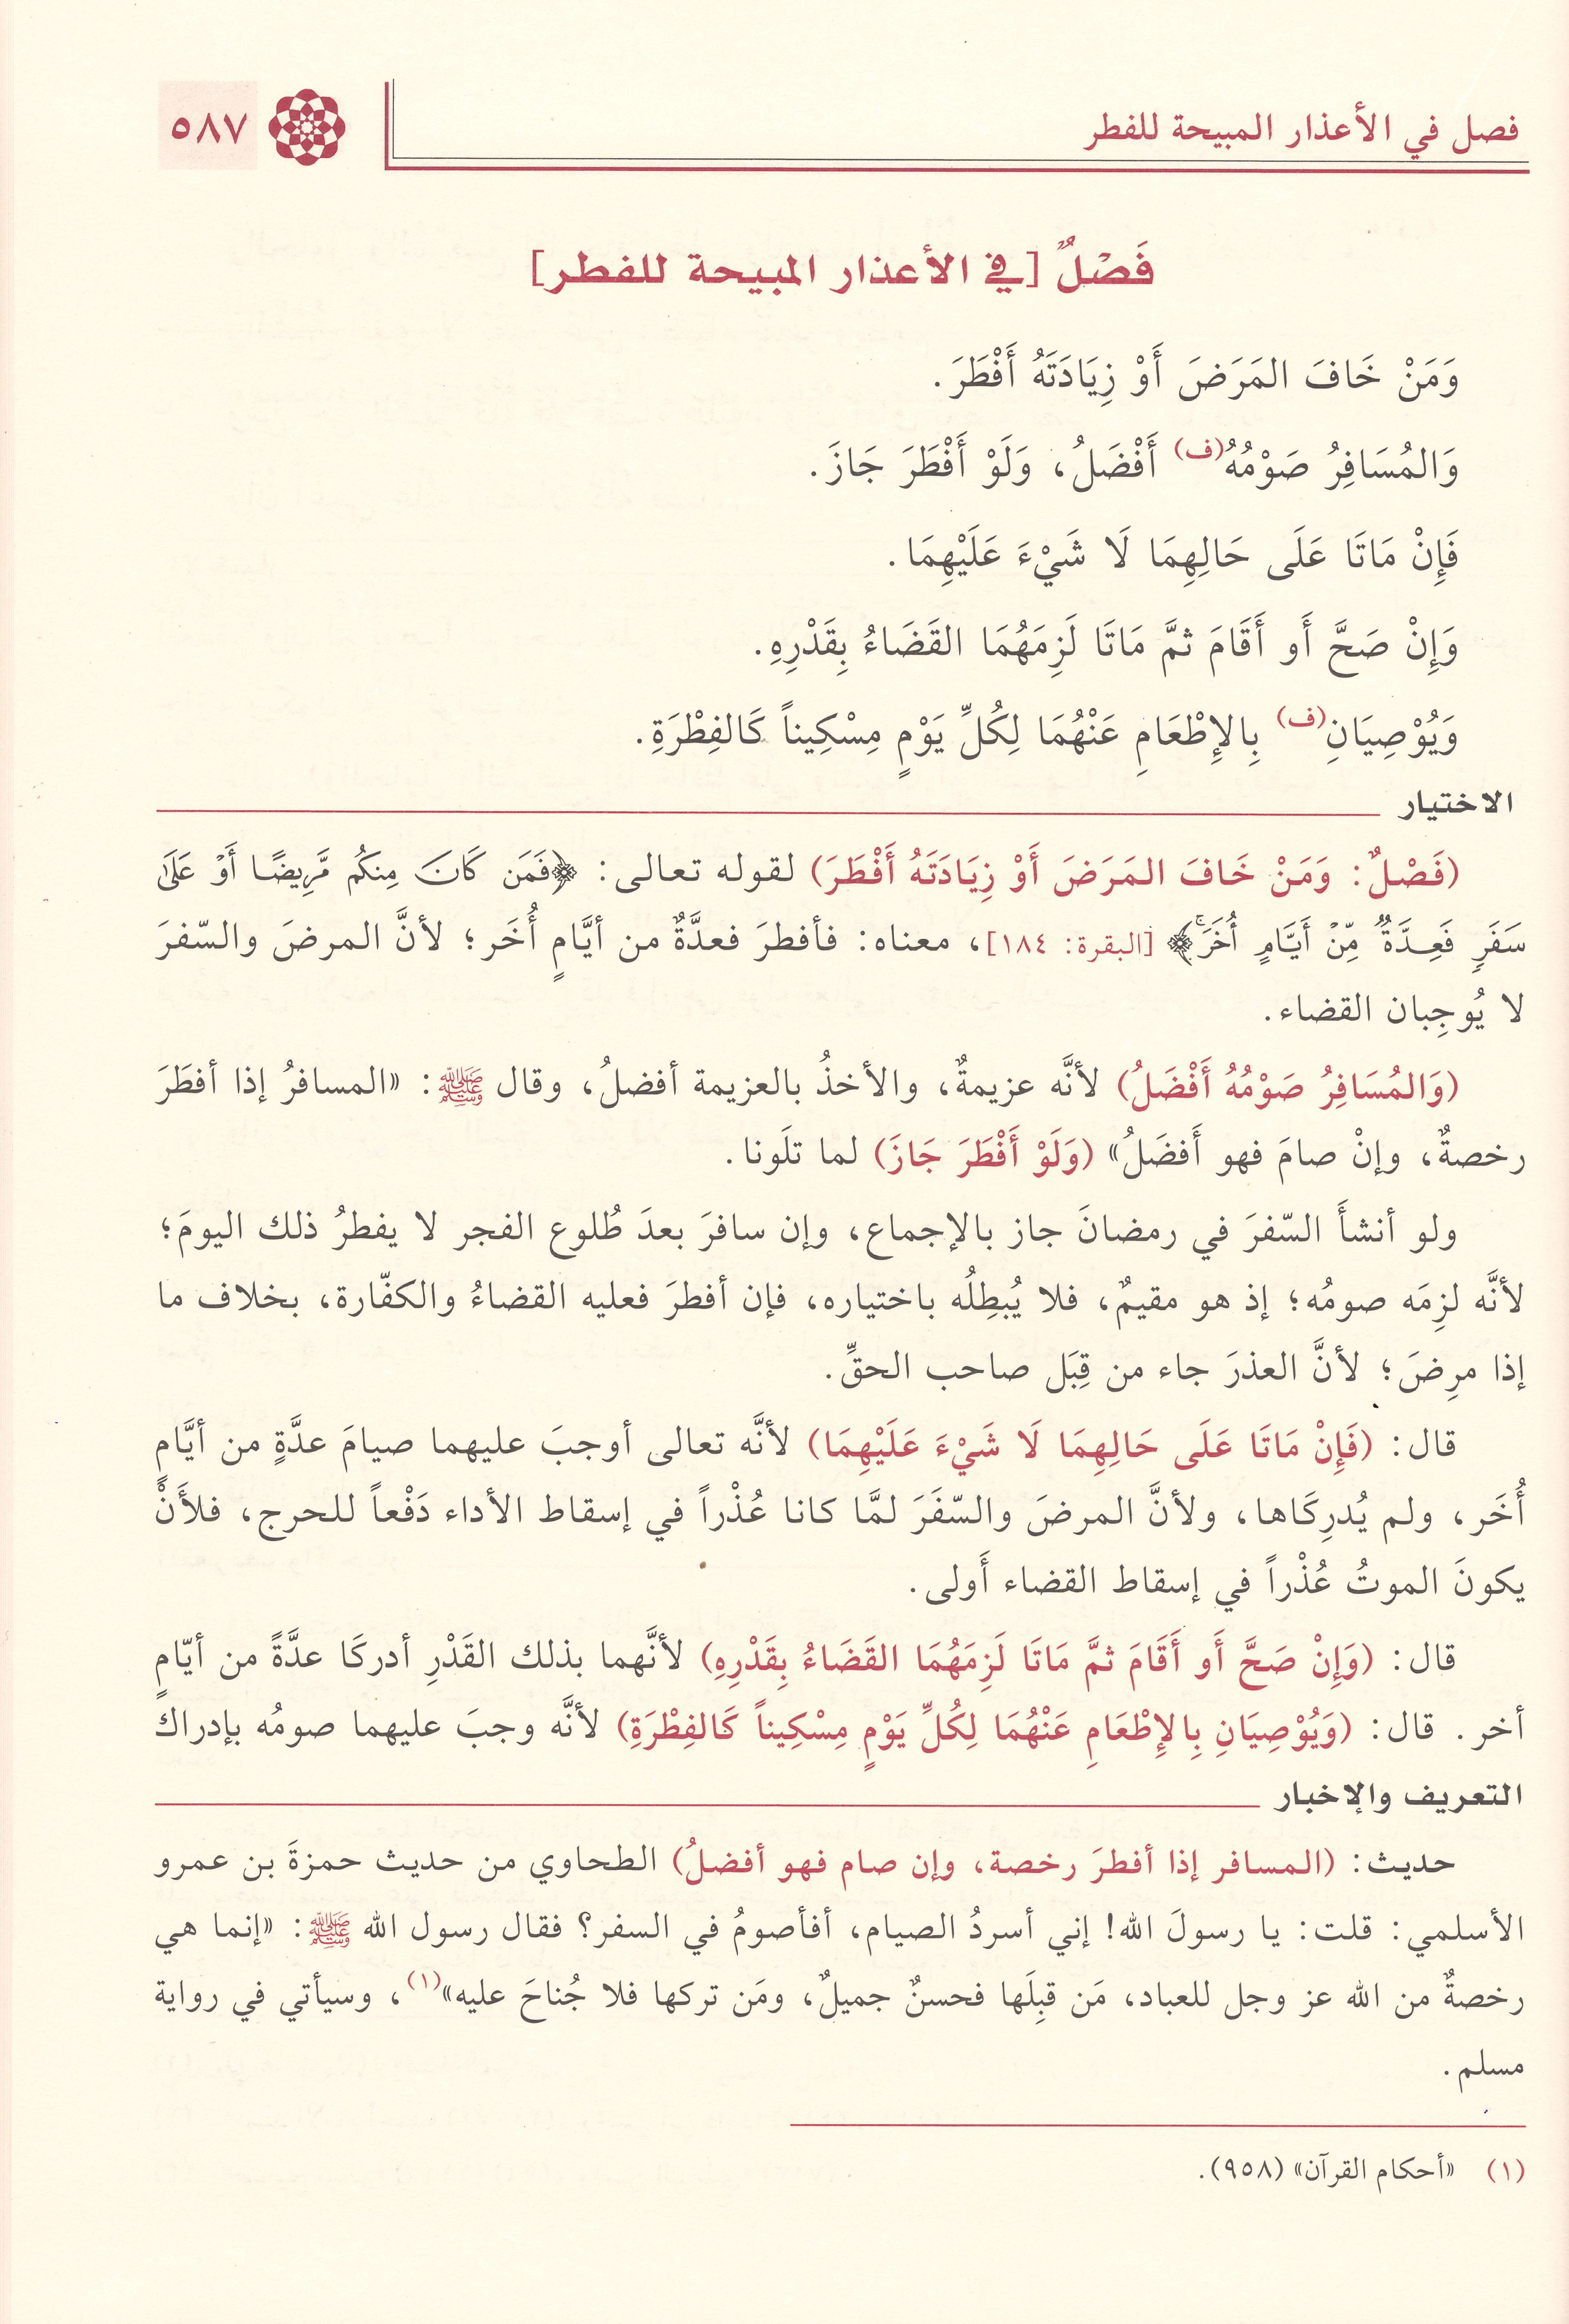 فصل في الأعذار المبيحة للفطر
٥٨٧
فَصْلٌ [في الأعذار المبيحة للفطر]
وَمَنْ خَافَ المَرَضَ أَوْ زِيَادَتَهُ أَفْطَرَ.
وَالمُسَافِرُ صَوْمُهُ(ف) أَفْضَلُ، وَلَوْ أَفْطَرَ جَازَ.
فَإِنْ مَاتَا عَلَى حَالِهِمَا لَا شَيْءَ عَلَيْهِمَا.
وَإِنْ صَحَّ أَو أَقَامَ ثمَّ مَاتَا لَزِمَهُمَا القَضَاءُ بِقَدْرِهِ.
وَيُوْصِيَانِ(ف) بِالإِطْعَامِ عَنْهُمَا لِكُلِّ يَوْمٍ مِسْكِيناً كَالفِطْرَةِ.
الاختيار
(فَصْلٌ: وَمَنْ خَافَ المَرَضَ أَوْ زِيَادَتَهُ أَفْطَرَ) لقوله تعالى: ﴿فَمَن كَانَ مِنكُم مَّرِيضًا أَوْ عَلَىٰ
سَفَرٍ فَعِدَّةٌ مِّنْ أَيَّامٍ أُخَرَ ۚ﴾ [البقرة: ١٨٤]، معناه: فأفطرَ فعدَّةٌ من أيَّامٍ أُخَر؛ لأنَّ المرضَ والسّفرَ
لا يُوجِبان القضاء.
(وَالمُسَافِرُ صَوْمُهُ أَفْضَلُ) لأنَّه عزيمةٌ، والأخذُ بالعزيمة أفضلُ، وقال ﷺ: «المسافرُ إذا أفطَرَ
رخصةٌ، وإنْ صامَ فهو أَفضَلُ» (وَلَوْ أَفْطَرَ جَازَ) لما تلَونا.
ولو أنشأَ السّفرَ في رمضانَ جاز بالإجماع، وإن سافرَ بعدَ طُلوع الفجر لا يفطرُ ذلك اليومَ؛
لأنَّه لزِمَه صومُه؛ إذ هو مقيمٌ، فلا يُبطِلُه باختياره، فإن أفطرَ فعليه القضاءُ والكفّارة، بخلاف ما
إذا مرِضَ؛ لأنَّ العذرَ جاء من قِبَل صاحب الحقِّ.
قال: (فَإِنْ مَاتَا عَلَى حَالِهِمَا لَا شَيْءَ عَلَيْهِمَا) لأنَّه تعالى أوجبَ عليهما صيامَ عدَّةٍ من أيَّامٍ
أُخَر، ولم يُدرِكَاها، ولأنَّ المرضَ والسّفَرَ لمَّا كانا عُذْراً في إسقاط الأداء دَفْعاً للحرج، فلأَنْ
يكونَ الموتُ عُذْراً في إسقاط القضاء أَولى.
قال: (وَإِنْ صَحَّ أَو أَقَامَ ثمَّ مَاتَا لَزِمَهُمَا القَضَاءُ بِقَدْرِهِ) لأنَّهما بذلك القَدْرِ أدركَا عدَّةً من أيّامٍ
أخر. قال: (وَيُوْصِيَانِ بِالإِطْعَامِ عَنْهُمَا لِكُلِّ يَوْمٍ مِسْكِيناً كَالفِطْرَةِ) لأنَّه وجبَ عليهما صومُه بإدراك
التعريف والإخبار
حديث: (المسافر إذا أفطرَ رخصة، وإن صام فهو أفضلُ) الطحاوي من حديث حمزةَ بن عمرو
الأسلمي: قلت: يا رسولَ الله! إني أسردُ الصيام، أفأصومُ في السفر؟ فقال رسول الله ﷺ: «إنما هي
رخصةٌ من الله عز وجل للعباد، مَن قبِلَها فحسنٌ جميلٌ، ومَن تركها فلا جُناحَ عليه»(١)، وسيأتي في رواية
مسلم.
(١) «أحكام القرآن» (٩٥٨).